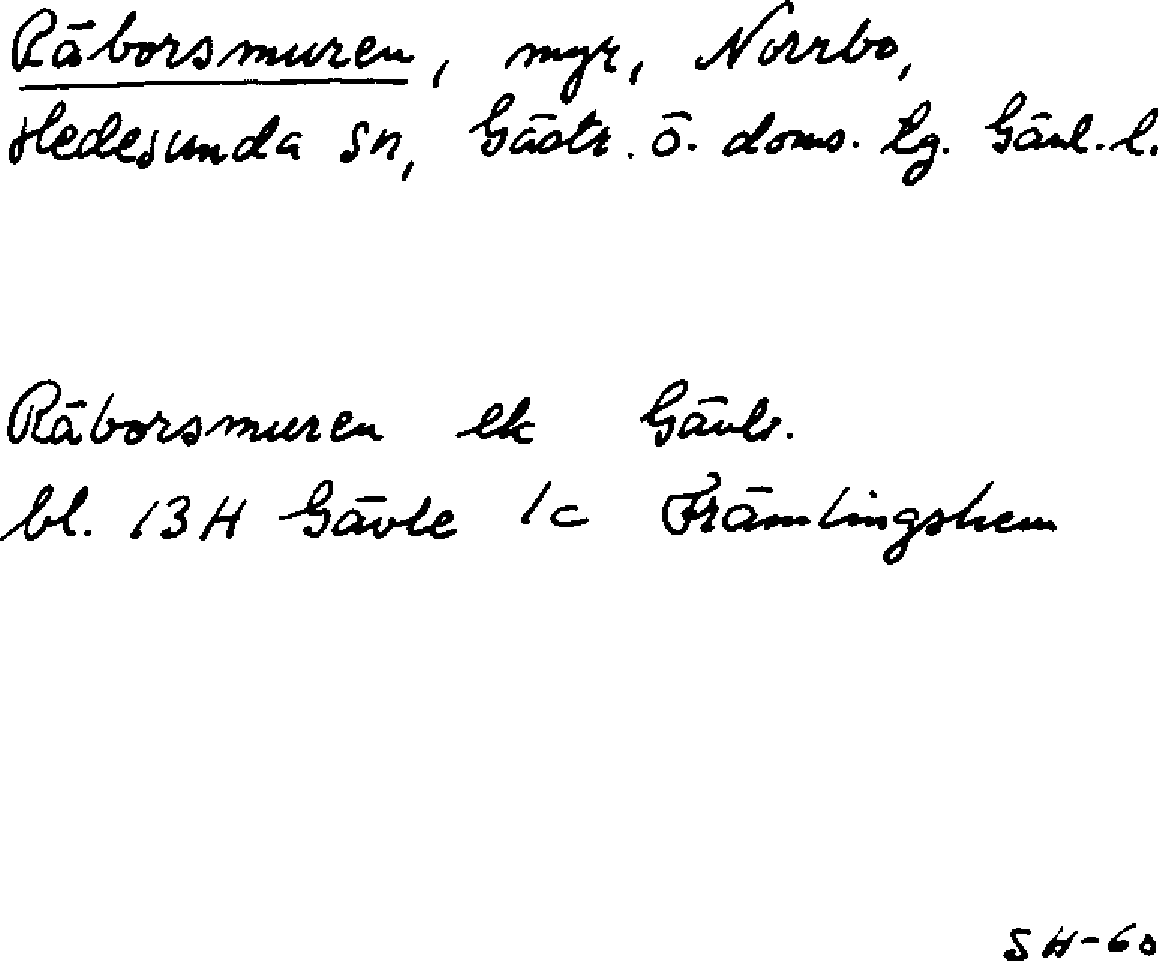 Räborsmuren, myr, Norrbo,
Hedesunda sn, Gästr. ö. doms. tg. Gävl. l.
Räborsmuren ek Gävle.
bl. 13H Gävle 1c Främlingshem
SH-60